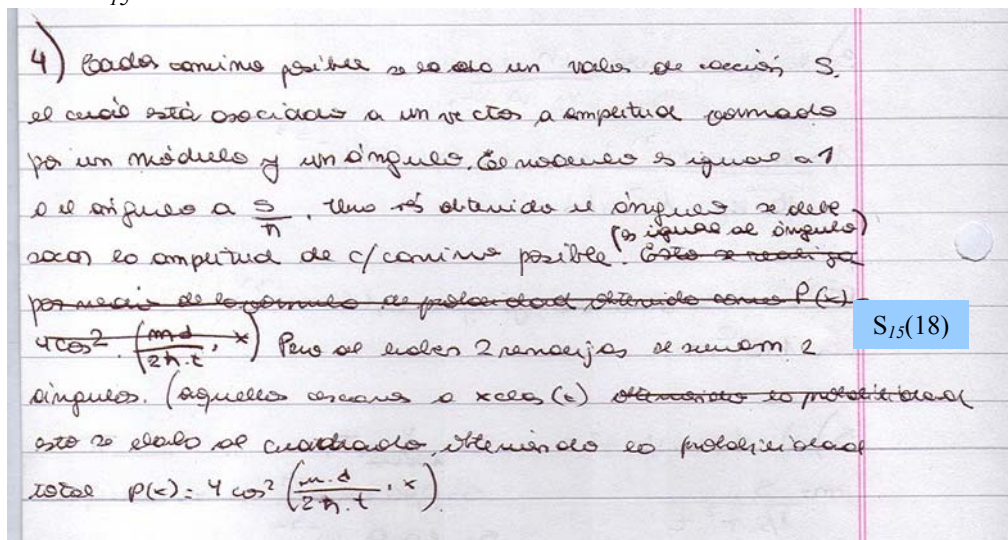 4) Cada camino posible se le da un valor de acción S.
el cuál está asociado a un vector amplitud formado
por un módulo y un ángulo. El módulo es igual a 1
o el ángulo a S/ħ. Una vez obtenido el ángulo se debe
(es igual al ángulo)
sacar la amplitud de c/ camino posible. Esto se realiza
por medio de la fórmula de probabilidad obtenida como P(x) =
4cos² . (m d / 2ħ.t . x) Pero al haber 2 rendijas se suman 2
S15(18)
ángulos. (aquellos cercanos a x clas (t) obteniendo la probabilidad
esto se eleva al cuadrado obteniendo la probabilidad
total P(x): 4 cos² (m.d / 2ħ.t . x)